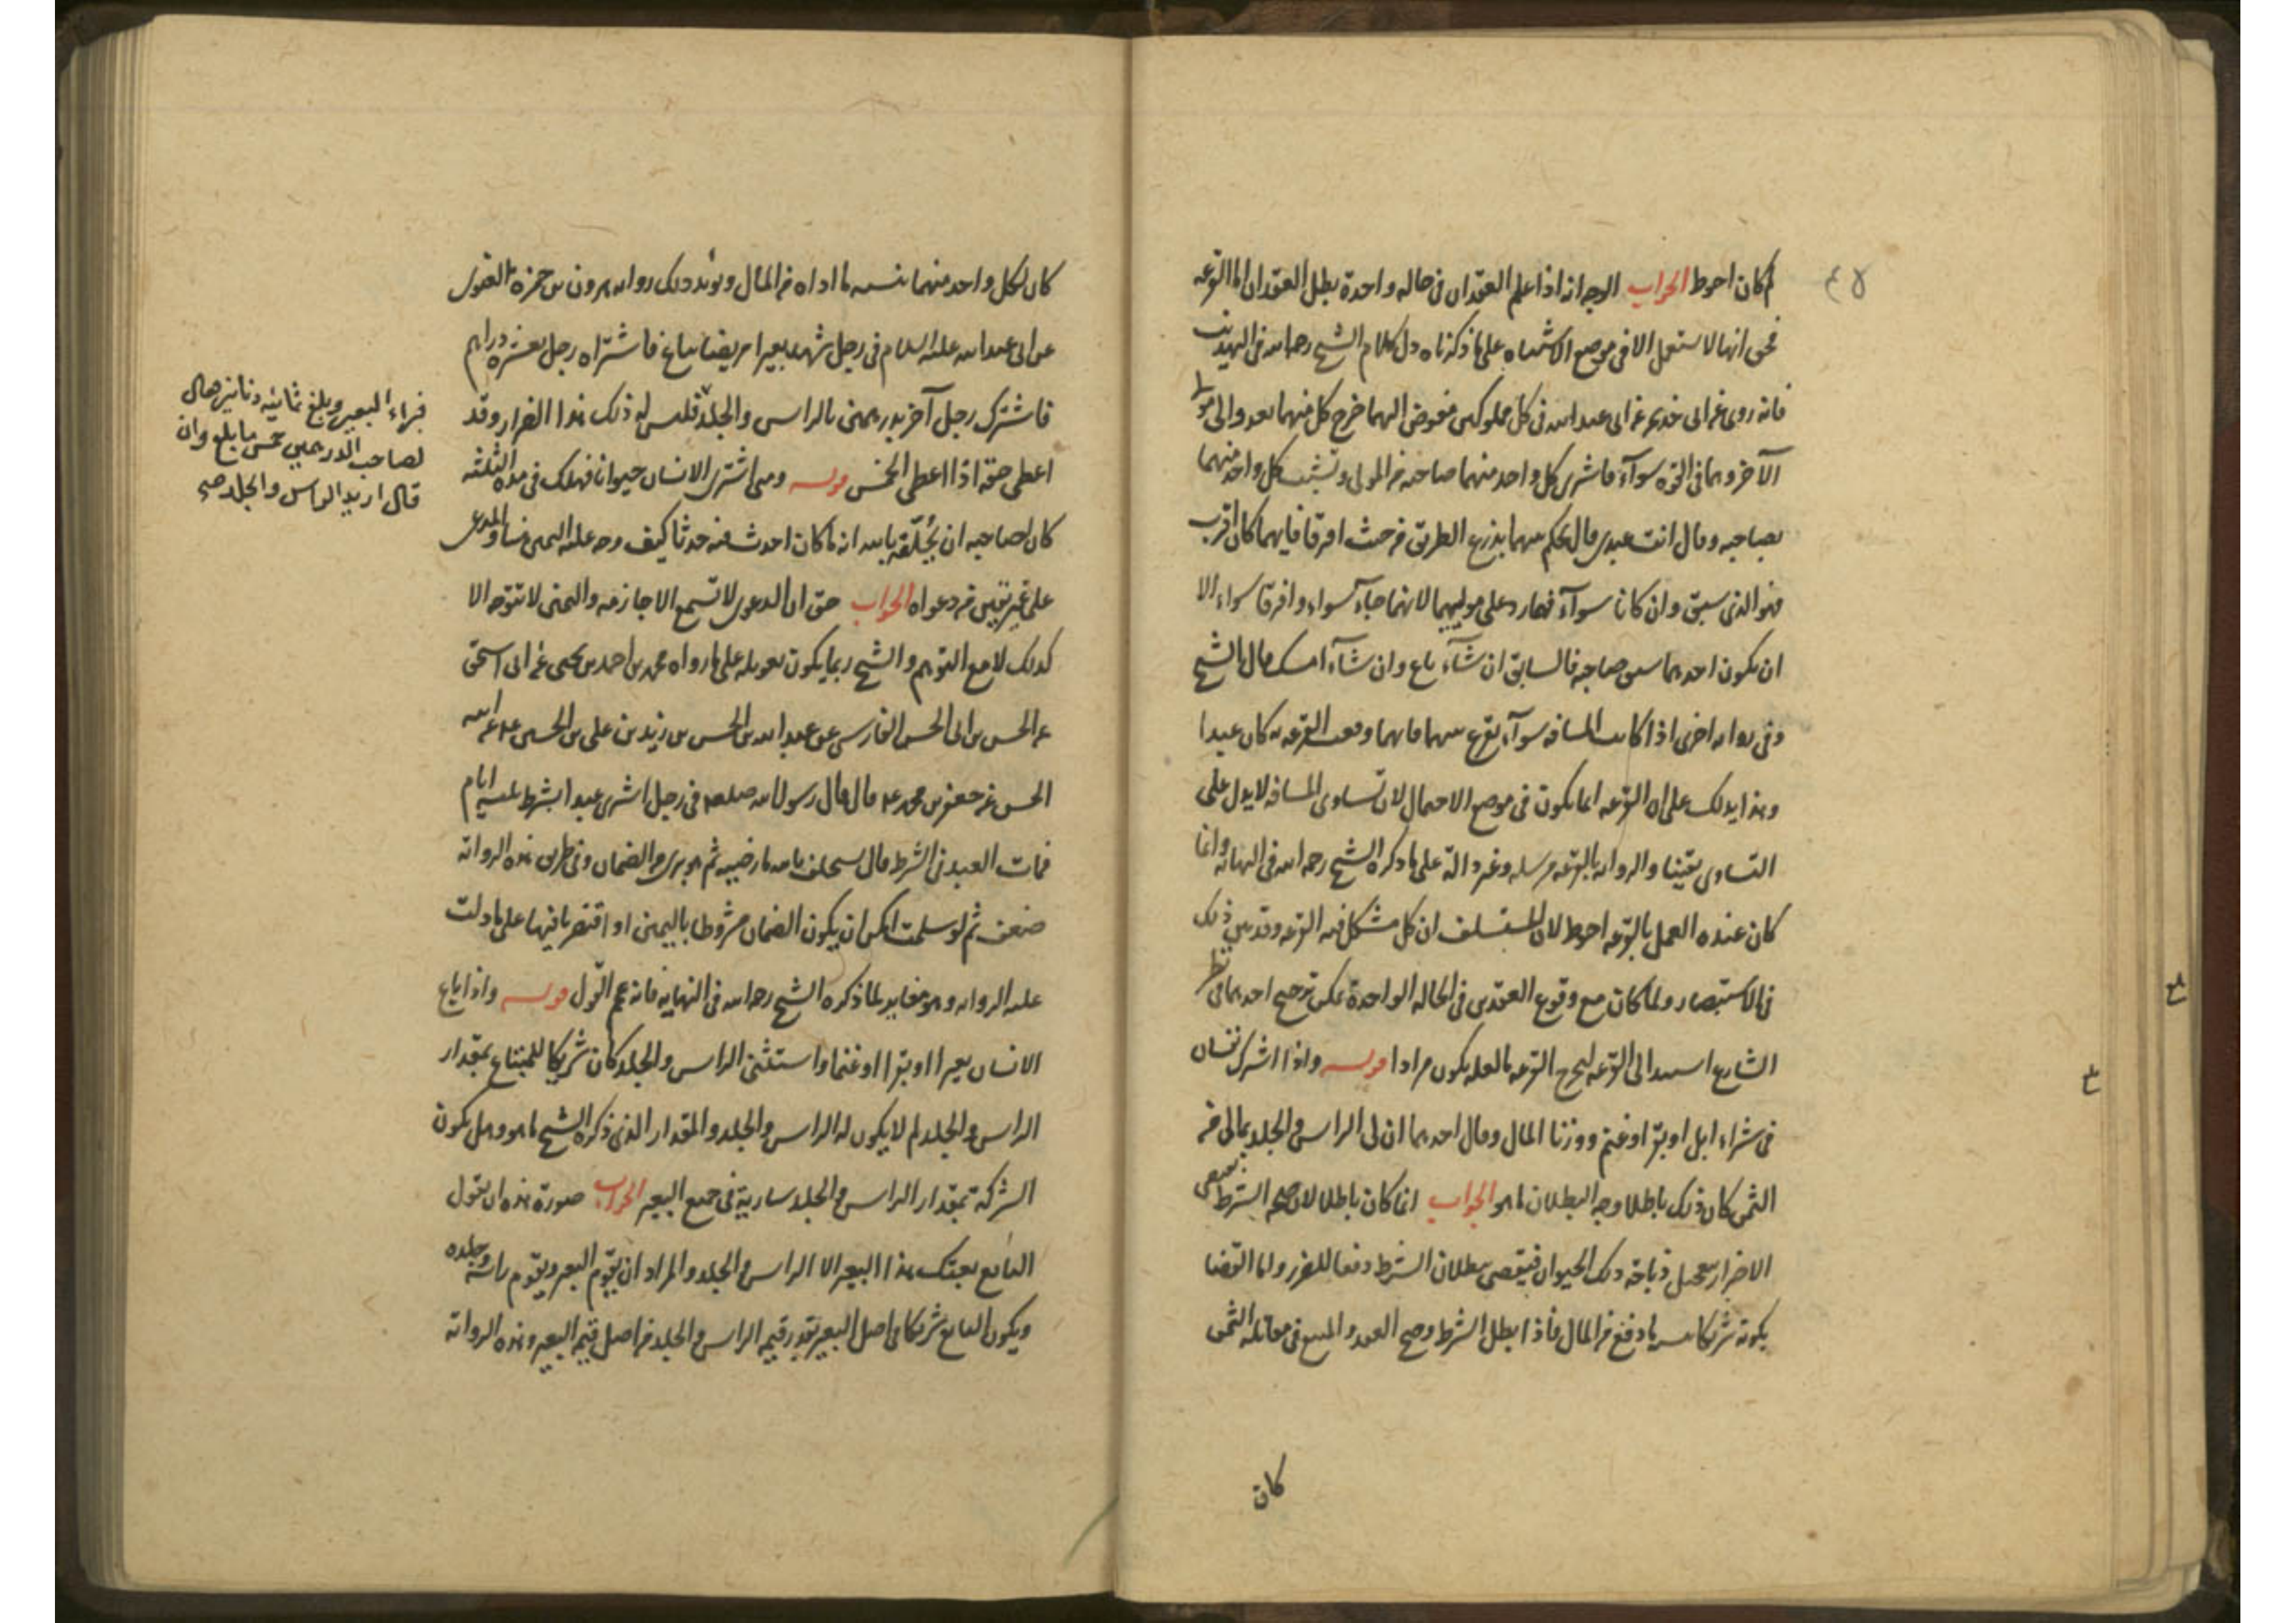 لم كان احوط الجواب الوجه انه اذا علم العقدان فى حاله واحدة بطل العقدان اما القرعه
فحق انها لا تستعمل الا فى موضع الاشتباه على ما ذكرناه دل كلام الشيخ رحمه الله فى التهذيب
فانه روى عن ابى خديجه عن ابى عبد الله فى كل مملوكين مفوض اليهما خرج كل منهما يعدو الى مولى
الآخر وهما فى القوه سوآء فاشترى كل واحد منهما صاحبه من المولى وتشبث كل واحد منهما
بصاحبه وقال انت عبدى قال يحكم بينهما بذرع الطريق من حيث افترقا فايهما كان اقرب
فهو الذى سبق وان كانا سوآء فهما رد على موليهما لانهما جاءآ سواء وافترقا سواء الا
ان يكون احدهما سبق صاحبه فالسابق ان شآء باع وان شآء امسك قال الشيخ
وفى روايه اخرى اذا كانت المسافه سوآء يقرع بينهما فايهما وقعت القرعه به كان عبدا
وهذا يدلك على ان القرعه انما يكون فى موضع الاحتمال لان تساوى المسافه لا يدل على
التساوى يقينا والروايه بالقرعه مرسله وغير دالة على ما ذكره الشيخ رحمه الله فى النهايه وانما
كان عنده العمل بالقرعه احوط لان ان كل مشكل فيه القرعه وقد بين ذلك
فى الاستبصار ولما كان مع وقوع العقدين فى الحاله الواحدة يمكن ترجيح احدهما فى نظر
الشارع استند الى القرعه ليخرج القرعه بالعله يكون مرادا قوله واذا اشترك نفسان
فى شراء ابل او بقر او غنم ووزنا المال وقال احدهما ان لى الراس والجلد بمالى من
الثمن كان ذلك باطلا وجه البطلان ما هو الجواب انما كان باطلا لان صحه الشرط يقتضى
الاضرار بتعجيل ذباحة ذلك الحيوان فيقتضى بطلان الشرط دفعا للضرر واما القضا
بكونه شريكا بنسبه ما دفع من المال فاذا بطل الشرط وصح العقد والمبيع فى مقابله الثمن
كان
كان لكل واحد منهما بنسبه ما اداه من المال ويؤيد ذلك روايه هرون بن حمزه الغنوى
عن ابى عبد الله عليه السلام فى رجل شهد بعيرا مريضا يباع فاشتراه رجل بعشره دراهم
فاشترك رجل آخر بدرهمين بالراس والجلد فليس له ذلك هذا الضرار وقد
اعطى حقه اذا اعطى الخمس قوله ومتى اشترى الانسان حيوانا فهلك فى مده الثلثه
كان لصاحبه ان يُحلّفه بالله انه ما كان احدث فيه حدثا كيف وجه عليه اليمين هنا والمدعى
على غير يقين من دعواه الجواب حق ان الدعوى لا تسمع الا جازمه واليمين لا تتوجه الا
كذلك لا مع التوهم والشيخ ربما يكون تعويله على ما رواه محمد بن احمد بن يحيى عن ابى اسحق
عن الحسن بن ابى الحسن الفارسى عن عبد الله بن الحسن بن زيد بن على بن الحسين عن ابيه
الحسن عن جعفر بن محمد قال قال رسول الله صلعم فى رجل اشترى عبدا بشرط ثلثه ايام
فمات العبد فى الشرط قال يستحلف بالله ما رضيه ثم هو برى من الضمان وفى طريق هذه الروايه
ضعف ثم لو سلمت امكن ان يكون الضمان مشروطا باليمين او اقتصر بافيها على ما دلت
عليه الروايه وهو مغاير لما ذكره الشيخ رحمه الله فى النهايه فانه عمم القول قوله واذا باع
الانسان بعيرا او بقرا او غنما واستثنى الراس والجلد كان شريكا للمبتاع بمقدار
الراس والجلد لم لا يكون له الراس والجلد والمقدار الذى ذكره الشيخ ما هو وهل يكون
الشركة بمقدار الراس والجلد سارية فى جميع البعير الجواب صورة هذه ان يقول
البائع بعتك هذا البعير الا الراس والجلد والمراد ان يقوّم البعير ويقوّم راسه وجلده
ويكون البائع شريكا فى اصل البعير بقدر قيمه الراس والجلد من اصل قيمه البعير وهذه الروايه
فبراء البعير وبلغ ثمانيه دنانير فقال
لصاحب الدرهمين خمس ما بلغ وان
قال اريد الراس والجلد صح